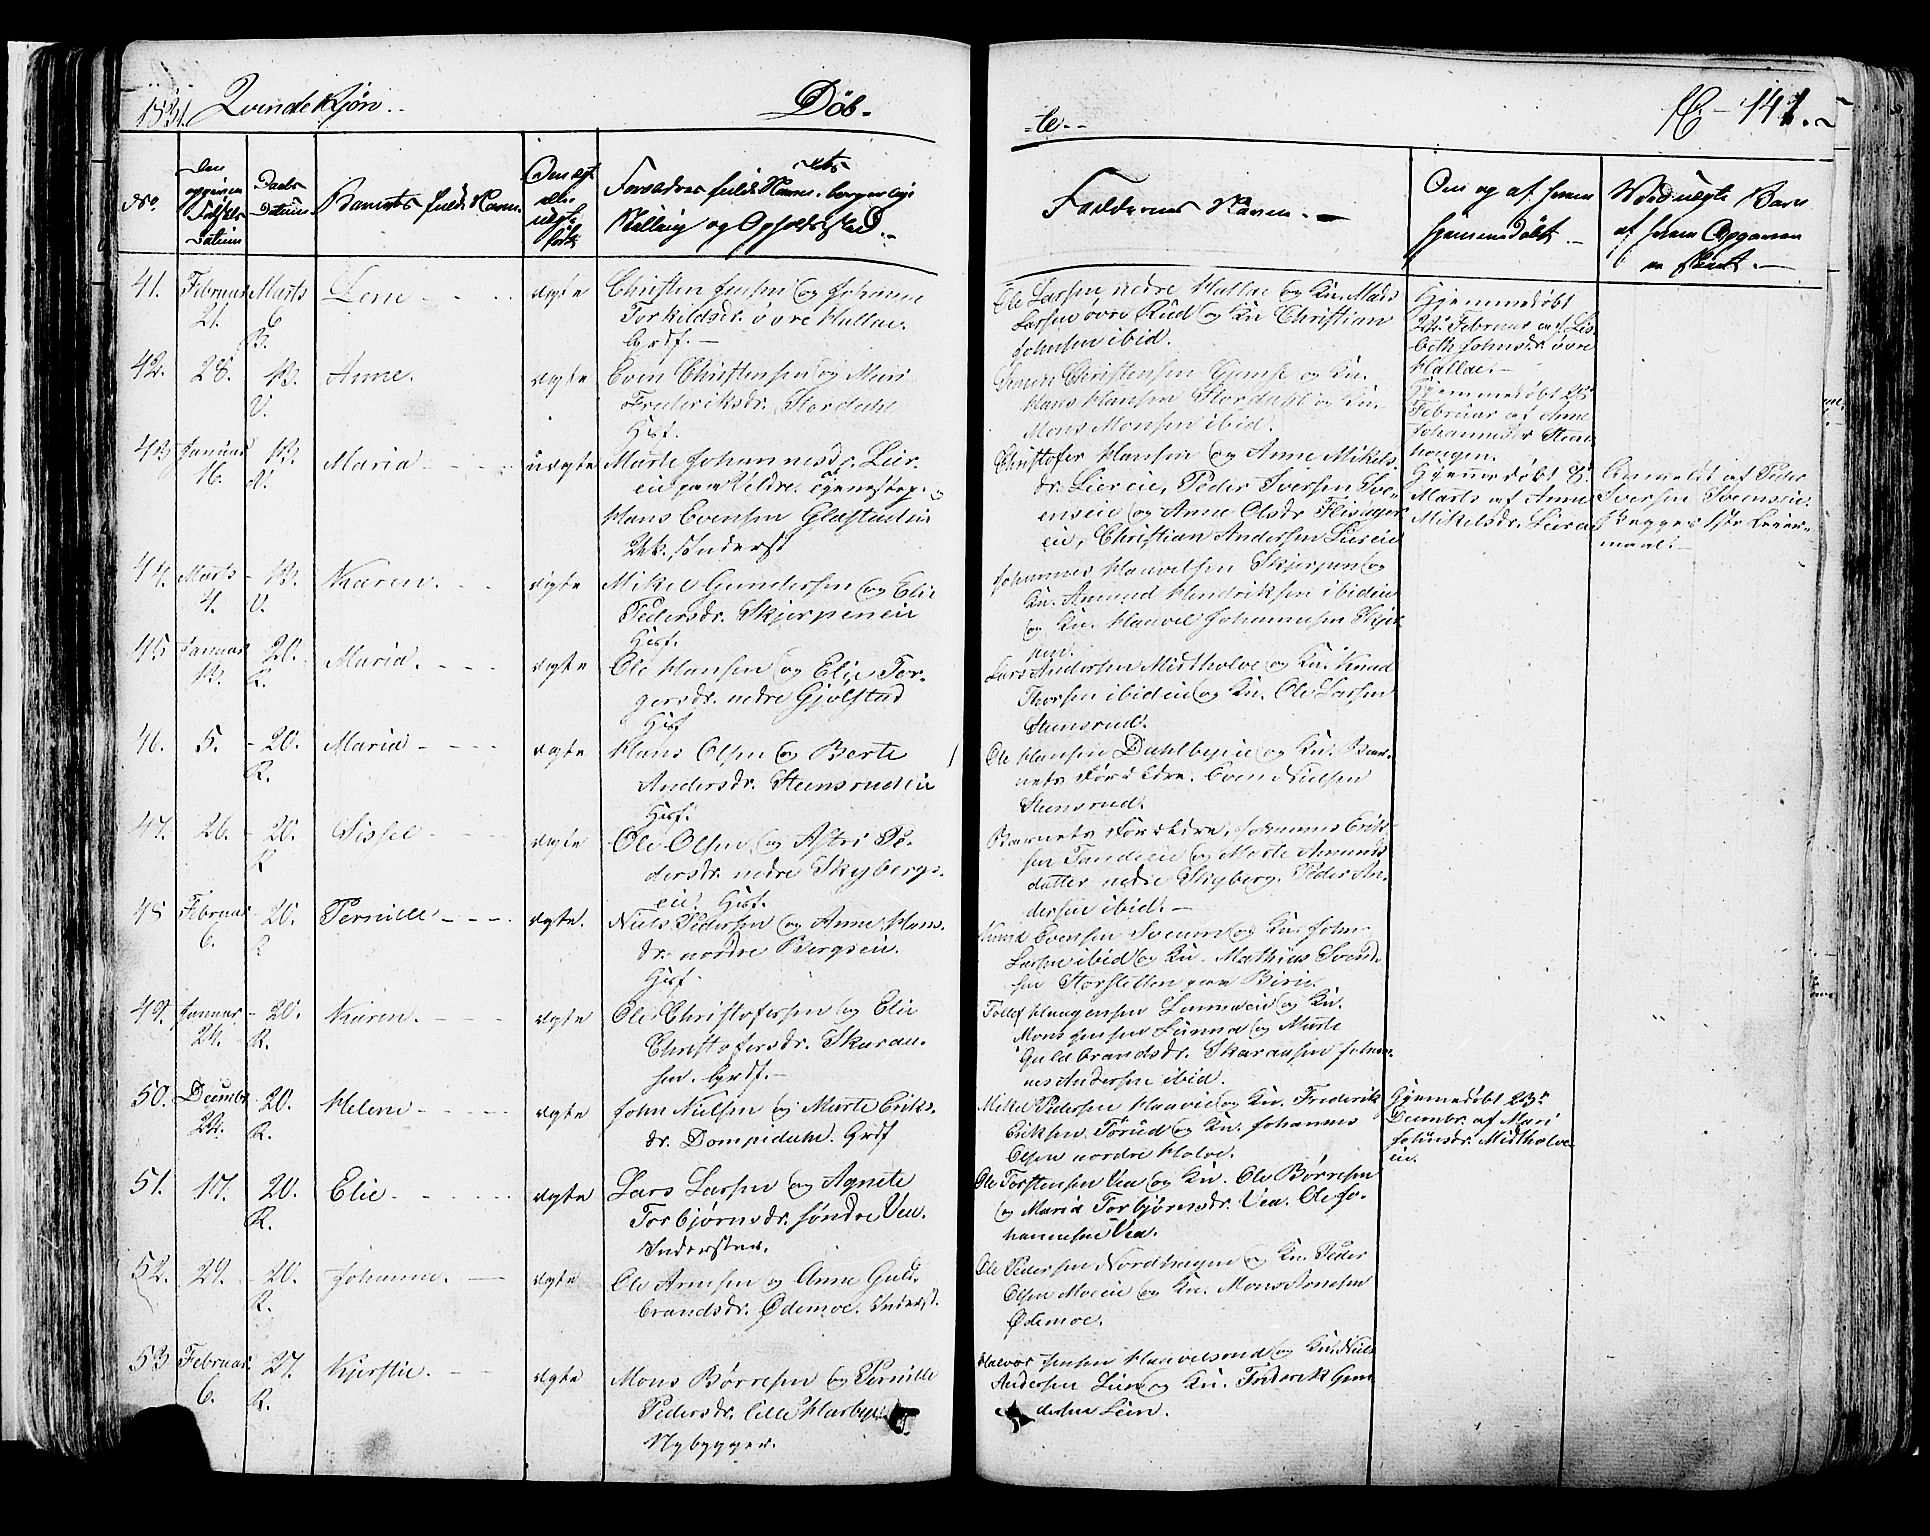 1831. Qvindekjøn.
Døb-
-te.
141.
No.
Den opgivne Fødsels Datum
Daabs Datum.
Barnets fulde Navn.
Om ægte eller uægte født
Forældres fulde Navne, borgerlige
Stilling og Opholdssted.
Faddernes Navne.
Om og af hvem
hjemmedøbt.
41. Februar 21. Marts 6 R. Lene ægte
Christen Jensen og Johanne
Torkildsdr. øvre Hallae.
Grdf.
Ole Larsen nedre Hallae og Kn. Mads
Larsen øvre Rud og Kn Christian
Johnsen ibid.
Hjemmedøbt
Februar af Lis-
beth Johnsdr. øvre
Hallae.
42. 28. 13. V. Anne. ægte
Even Christensen og Mari
Frederiksdr. Stordahl
Husf.
Simen Christensen Gjemse og Kn.
Hans Hansen Stordahl og Kn.
Mons Monsen ibid.
Hjemmedøbt 28
Februar af Anne
Johannesdr Steen-
haugen.
43 Januar 16. 13. V. Maria uægte
Marte Johannesdr. Leer-
eie paa Veldre. Tjenestep. og
Hans Evensen Gladstadeie
Uk. Inderst
Christofer Hansen og Anne Mikels-
dr. Liereie, Peder Iversen Sve-
enseie og Anne Olsdr Flisager-
eie, Christian Andersen Liereie
Hjemmedøbt 8.
Marts af Anne
Mikelsdr. Liera
Anmeldt af Peder
Iversen Svenseie.
Begges 1ste Leier-
maal.
44. Marts 4. 13. V. Karen. ægte
Mikel Gundersen og Elie
Pedersdr. Skjerpeneie
Husf.
Johannes Haavelsen Skjerpen og
Kn. Amund Hendriksen ibideie
og Kn. Haavel Johannesen Skjer-
pen.
45 Januar 13. 20. R. Maria. ægte
Ole Hansen og Elie Tor-
gersdr. nedre Gjølstad
Husf
Lars Andersen Midtholve og Kn. Knud
Thorsen ibideie og Kn. Ole Larsen
Steensrud.
46. 5. 20. R. Maria ægte
Hans Olsen og Berte
Andersdr. Steensrudeie
Husf.
Ole Hansen Dahlbyeie og Kn. Bar-
nets Forældre. Even Nielsen
Steensrud.
47. 26. 20. R Sissel ægte
Ole Olsen og Astri Pe-
dersdr. nedre Skyberg-
eie. Husf.
Barnets Forældre, Johannes Erik-
sen Tandeie og Marte Amunds-
datter nedre Skyberg. Peder An-
dersen ibid.
48 Februar 6. 20. R Pernille ægte.
Niels Pedersen og Anne Hans-
dr. nordre Bergseie.
Husf.
Knud Evensen Sveum og Kn. John
Larsen ibid og Kn. Mathias Svend-
sen Storsletten paa Birie.
49. Januar 24. 20. R. Karen. ægte
Ole Christofersen og Elie
Christofersdr. Skaraa-
sen. Grdf.
Tollef Haagensen Lunnaeie og Kn.
Mons Jensen Lunna og Marte
Guldbrandsdr. Skaraasen Johan-
nes Andersen ibid.
50. Decembr 22. 20. R. Helene ægte
John Nielsen og Marte Eriks-
dr. Dompidahl. Grdf
Mikel Pedersen Haavie og Kn. Frederik
Eriksen Torud og Kn. Johannes
Olsen nordre Holve.
Hjemmedøbt 23.
Decembr. af Mari
Johnsdr. Midtholve-
eie.
51. 17. 20. R. Elie ægte
Lars Larsen og Agnete
Torbjørnsdr. søndre Vea.
Inderster.
Ole Torstensen Vea og Kn. Ole Børresen
og Maria Torbjørnsdr. Vea. Ole Jo-
hannesen Vea.
52. 29. 20. R. Johanne. ægte
Ole Arnesen og Anne Guld-
brandsdr. Ødemoe. Inderst.
Ole Pedersen Nordhagen og Kn. Peder
Olsen Moeie og Kn. Mons Arnesen
Ødemoe.
53 Februar 6. 27. R. Kjerstie. ægte
Mons Børresen og Pernille
Pedersdr. lille Harbye
Nybygger.
Halvor Jensen Haavelsrud og Kn. Niels
Andersen Lien og Kn. Frederik Gun-
dersen Lien.